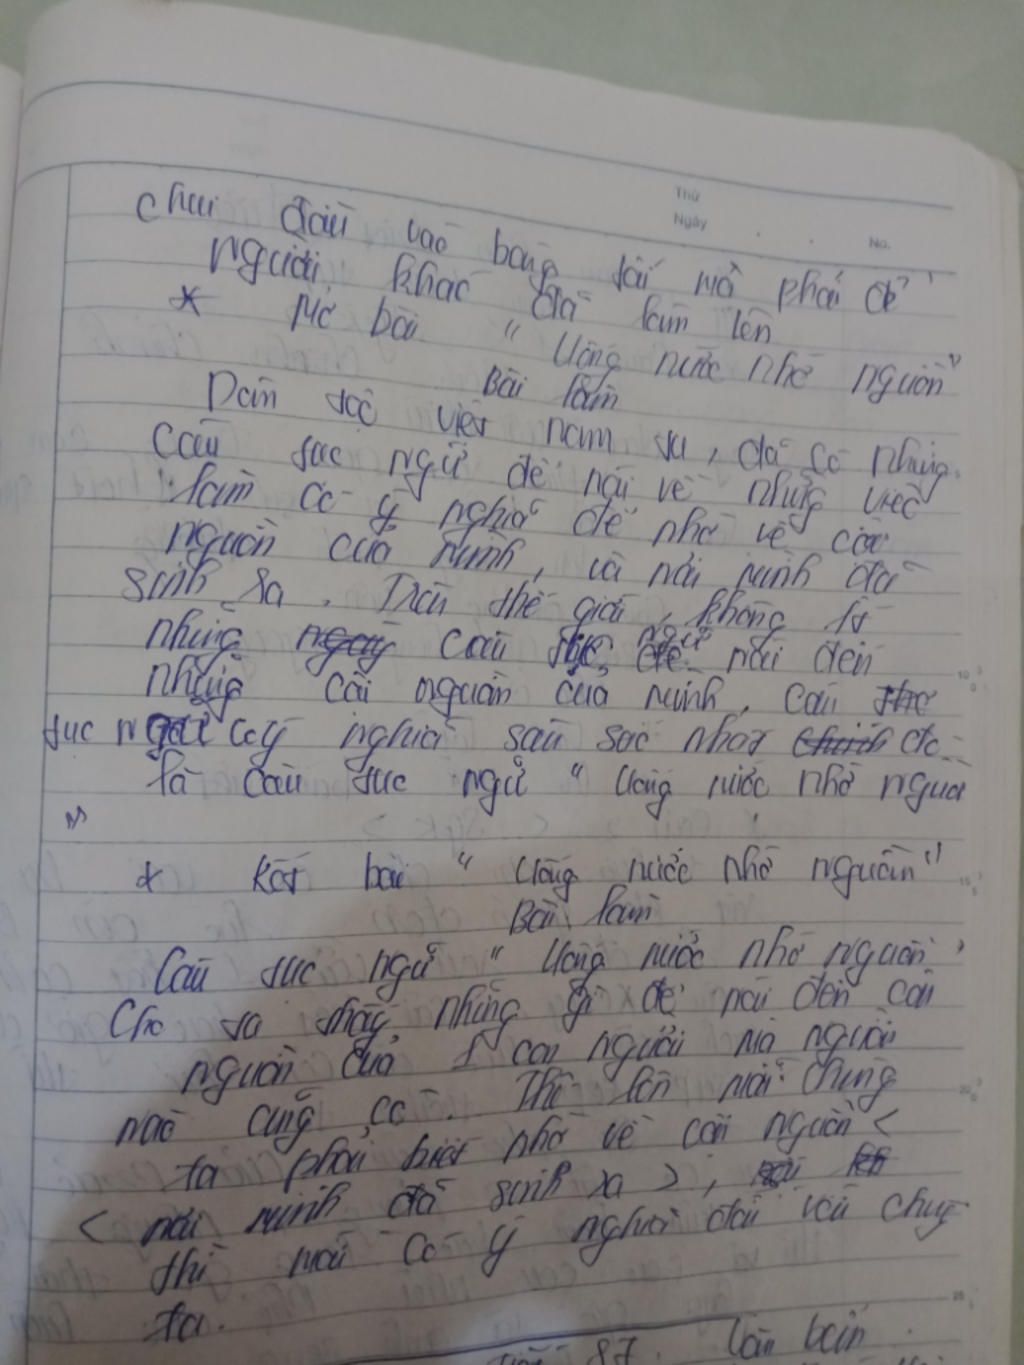 Thứ
Ngày
No.
chui đầu vào bóng tối mà phải để
người khác đã làm lên
* Mở bài " Uống nước nhớ nguồn"
Bài làm
Dân tộc việt nam ta, đã có những
câu tục ngữ để nói về những việc
làm có ý nghĩa để nhớ về cội
nguồn của mình, và nơi mình đã
sinh ra. Trên thế giới, không ít
những câu tục ngữ nói đến
những cội nguồn của mình, câu
tục ngữ có ý nghĩa sâu sắc nhất đó
là câu tục ngữ " Uống nước nhớ nguồn
"
* Kết bài " Uống nước nhớ nguồn"
Bài làm
Câu tục ngữ " Uống nước nhớ nguồn"
Cho ta thấy những gì để nói đến cội
nguồn của 1 con người mà người
nào cũng có. Thế lên mỗi chúng
ta phải biết nhớ về cội nguồn <
< nơi mình đã sinh ra >,
thì mới có ý nghĩa đối với chúng
ta.
87. Văn bản